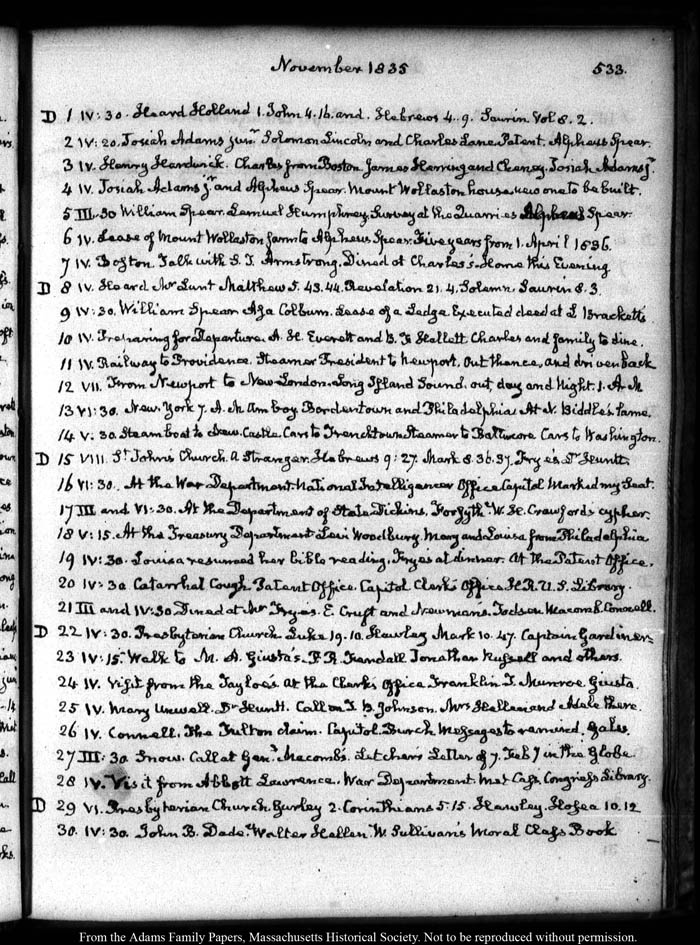 November 1835
533.
D 1 IV:30. Heard Holland 1. John 4.16. and. Hebrews 4..9. Saurin Vol 8. 2.
2 IV:20. Josiah Adams junr. Solomon Lincoln and Charles Lane. Patent. Alpheus Spear.
3 IV. Henry Hardwick. Charles from Boston James Herring and Cheney. Josiah Adams jr.
4 IV. Josiah Adams jr. and Alpheus Spear. Mount Wollaston house, new one to be built.
5 III.30 William Spear. Lemuel Humphrey. Survey at the Quarries Spear.
6 IV. Lease of Mount Wollaston farm to Alpheus Spear. Five years from 1. April 1836.
7 IV. Boston. Talk with S. T. Armstrong. Dined at Charles's. Home this Evening
D 8 IV. Heard Mr Lunt Matthew 5. 43.44. Revelation 21.4. Solemn. Saurin 8.3.
9 IV:30. William Spear Asa Colburn. Lease of a Ledge Executed deed at L Brackett's
10 IV. Preparing for Departure. A. H. Everett and B. F. Hallett Charles and family to dine.
11 IV. Railway to Providence. Steamer President to Newport. Out thence, and driven back
12 VII. From Newport to New London. Long Island Sound. out day and Night. 1. A.M
13 VI:30. New. York 7. A.M Amboy. Bordentown and Philadelphia. At N. Biddle's. Lame.
14 V.30 Steamboat to New. Castle. Cars to Frenchtown Steamer to Baltimore Cars to Washington.
D 15 VIII. St Johns Church. A Stranger. Hebrews 9:27. Mark 8.36.37. Frye's Dr Huntt.
16 VI:30. At the War Department. National Intelligencer Office Capitol Marked my Seat.
17 III and VI:30. At the Department of State. Dickins. Forsyth. W. H. Crawford's cypher.
18 V:15. At the Treasury Department Levi Woodbury. Mary and Louisa from Philadelphia
19 IV:30. Louisa resumed her bible reading. Fryes at dinner. At the Patent Office.
20 IV:30 Catarrhal Cough Patent Office. Capitol Clerk's Office H.R.U.S. Library.
21 III and IV:30 Dined at Mr Fryes. E. Cruft and Newman's. Todson Macomb. Connell.
D 22 IV:30. Presbyterian Church Luke 19.10. Hawley Mark 10.47. Captain Gardiner
23 IV:15. Walk to M. A. Giusta's. T. R. Randall Jonathan Russell and others.
24 IV. Visit from the Tayloe's. At the Clerk's Office Franklin T. Munroe. Giusta.
25 IV. Mary Unwell. Dr Huntt. Call on T. B. Johnson. Mrs Hellen and Adele there.
26 IV. Connell. The Fulton claim. Capitol. Burch Messages to remind. Gales
27 III:30. Snow. Call at Genl. Macomb's. Letcher's Letter of 7. Feby in the Globe
28 IV. Visit from Abbott Lawrence. War Department. Met Cass. Congress Library.
D 29 VI. Presbyterian Church. Gurley 2. Corinthians 5.15. Hawley. Hosea 10.12
30. IV:30. John B. Dade. Walter Hellen. W. Sullivan's Moral Class Book
From the Adams Family Papers, Massachusetts Historical Society. Not to be reproduced without permission.